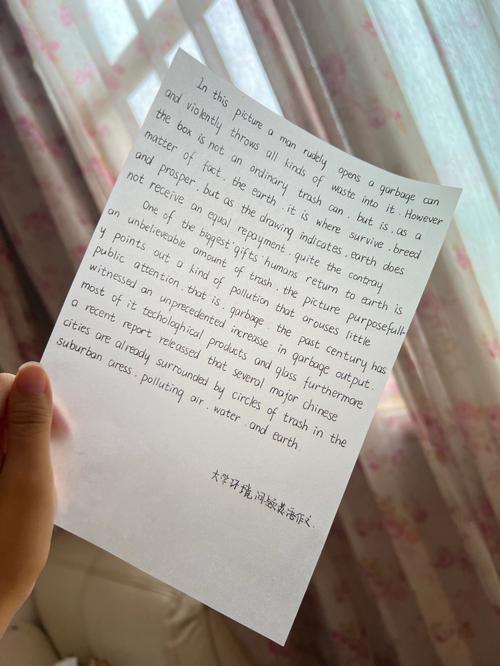 In this picture a man rudely opens a garbage can
and violently throws all kinds of waste into it. However
the box is not an ordinary trash can. but is. as a
matter of fact. the earth. it is where survive. breed
and prosper. but as the drawing indicates. earth does
not receive an equal repayment. quite the contray
One of the biggest "gifts" humans return to earth is
an unbelieveable amount of trash. the picture purposefull-
y points out a kind of pollution that arouses little
public attention. that is, garbage. the past century has
witnessed an unprecedented increase in garbage output.
most of it techologhical products and glass furthermore
a recent report released that several major chinese
cities are already surrounded by circles of trash in the
suburban aress. polluting air. water. and earth.
大学环境问题英语作文.